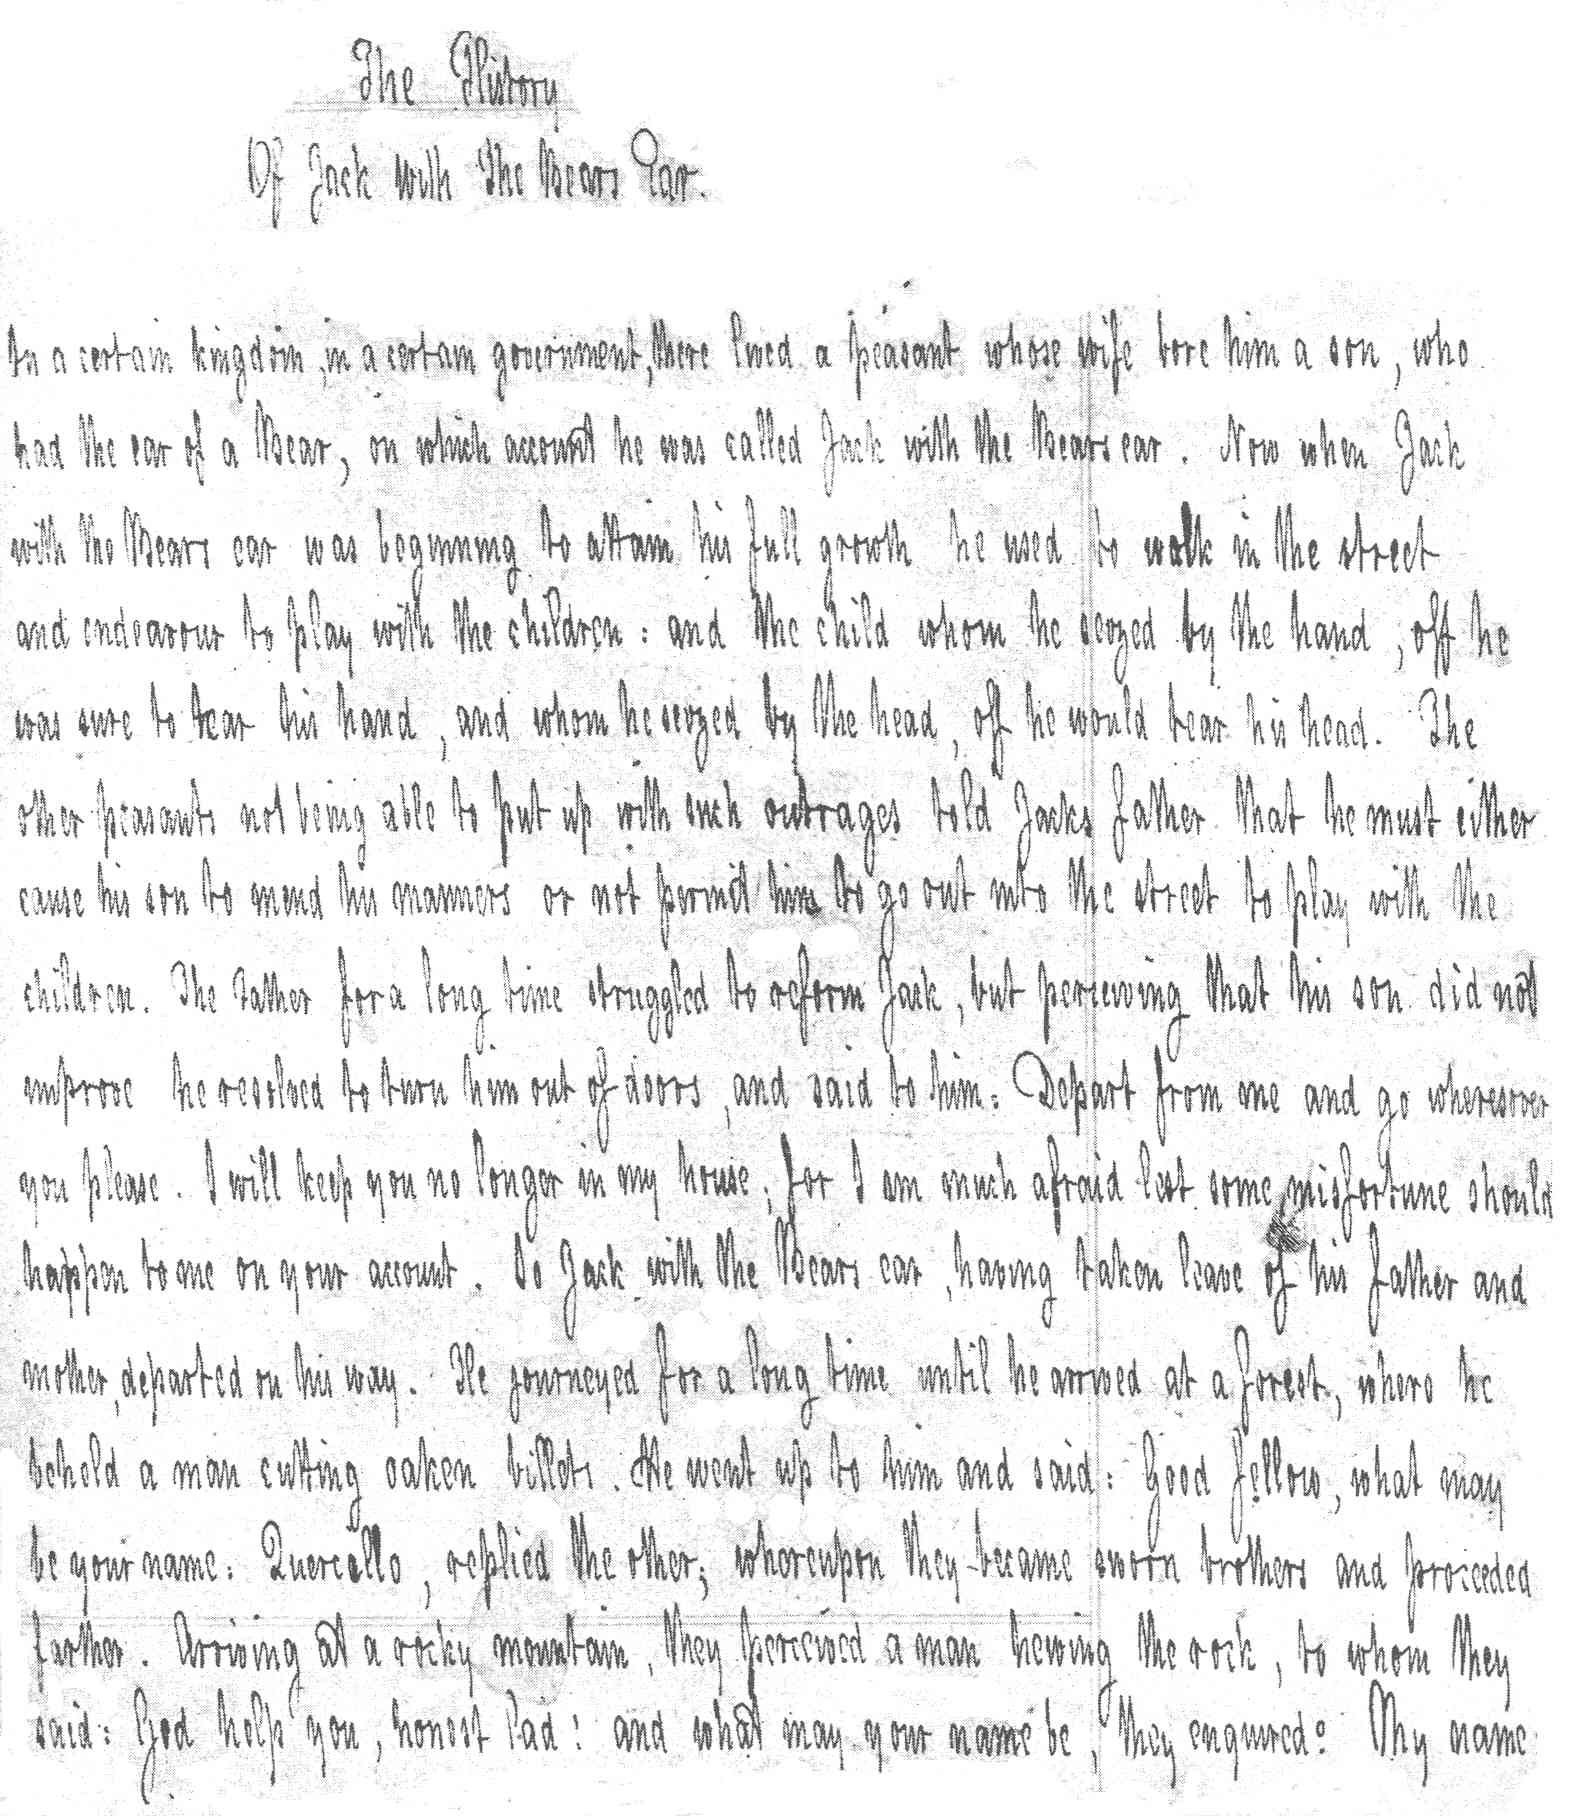 The History
Of Jack with The Bears Ear.
In a certain kingdom, in a certain government, there lived a peasant whose wife bore him a son, who
had the ear of a Bear, on which account he was called Jack with the Bears ear. Now when Jack
with the Bears ear was beginning to attain his full growth he used to walk in the street
and endeavour to play with the children: and the child whom he seized by the hand, off he
was sure to tear his hand, and whom he seized by the head, off he would tear his head. The
other peasants not being able to put up with such outrages told Jacks father that he must either
cause his son to mend his manners or not permit him to go out into the street to play with the
children. The father for a long time struggled to reform Jack, but perceiving that his son did not
improve he resolved to turn him out of doors, and said to him: Depart from me and go wheresoever
you please. I will keep you no longer in my house, for I am much afraid lest some misfortune should
happen to me on your account. So Jack with the Bears ear, having taken leave of his father and
mother, departed on his way. He journeyed for a long time until he arrived at a forest, where he
beheld a man cutting oaken billets. He went up to him and said: Good fellow, what may
be your name: Quercillo, replied the other; whereupon they became sworn brothers and proceeded
farther. Arriving at a rocky mountain, they perceived a man hewing the rock, to whom they
said: God help you, honest lad! and what may your name be, they enquired: My name